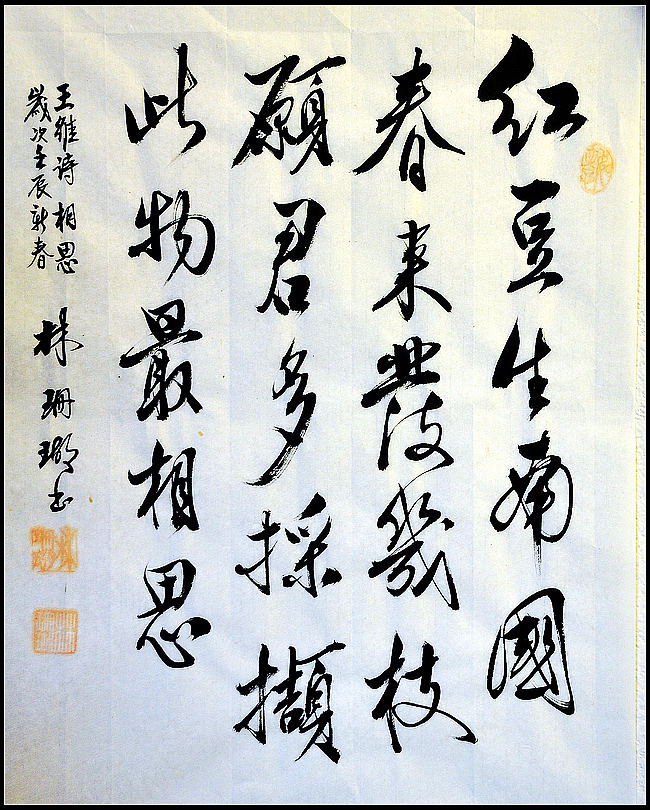 紅豆生南國
春來發幾枝
願君多採擷
此物最相思
王維詩 相思
歲次壬辰新春
林珊 書